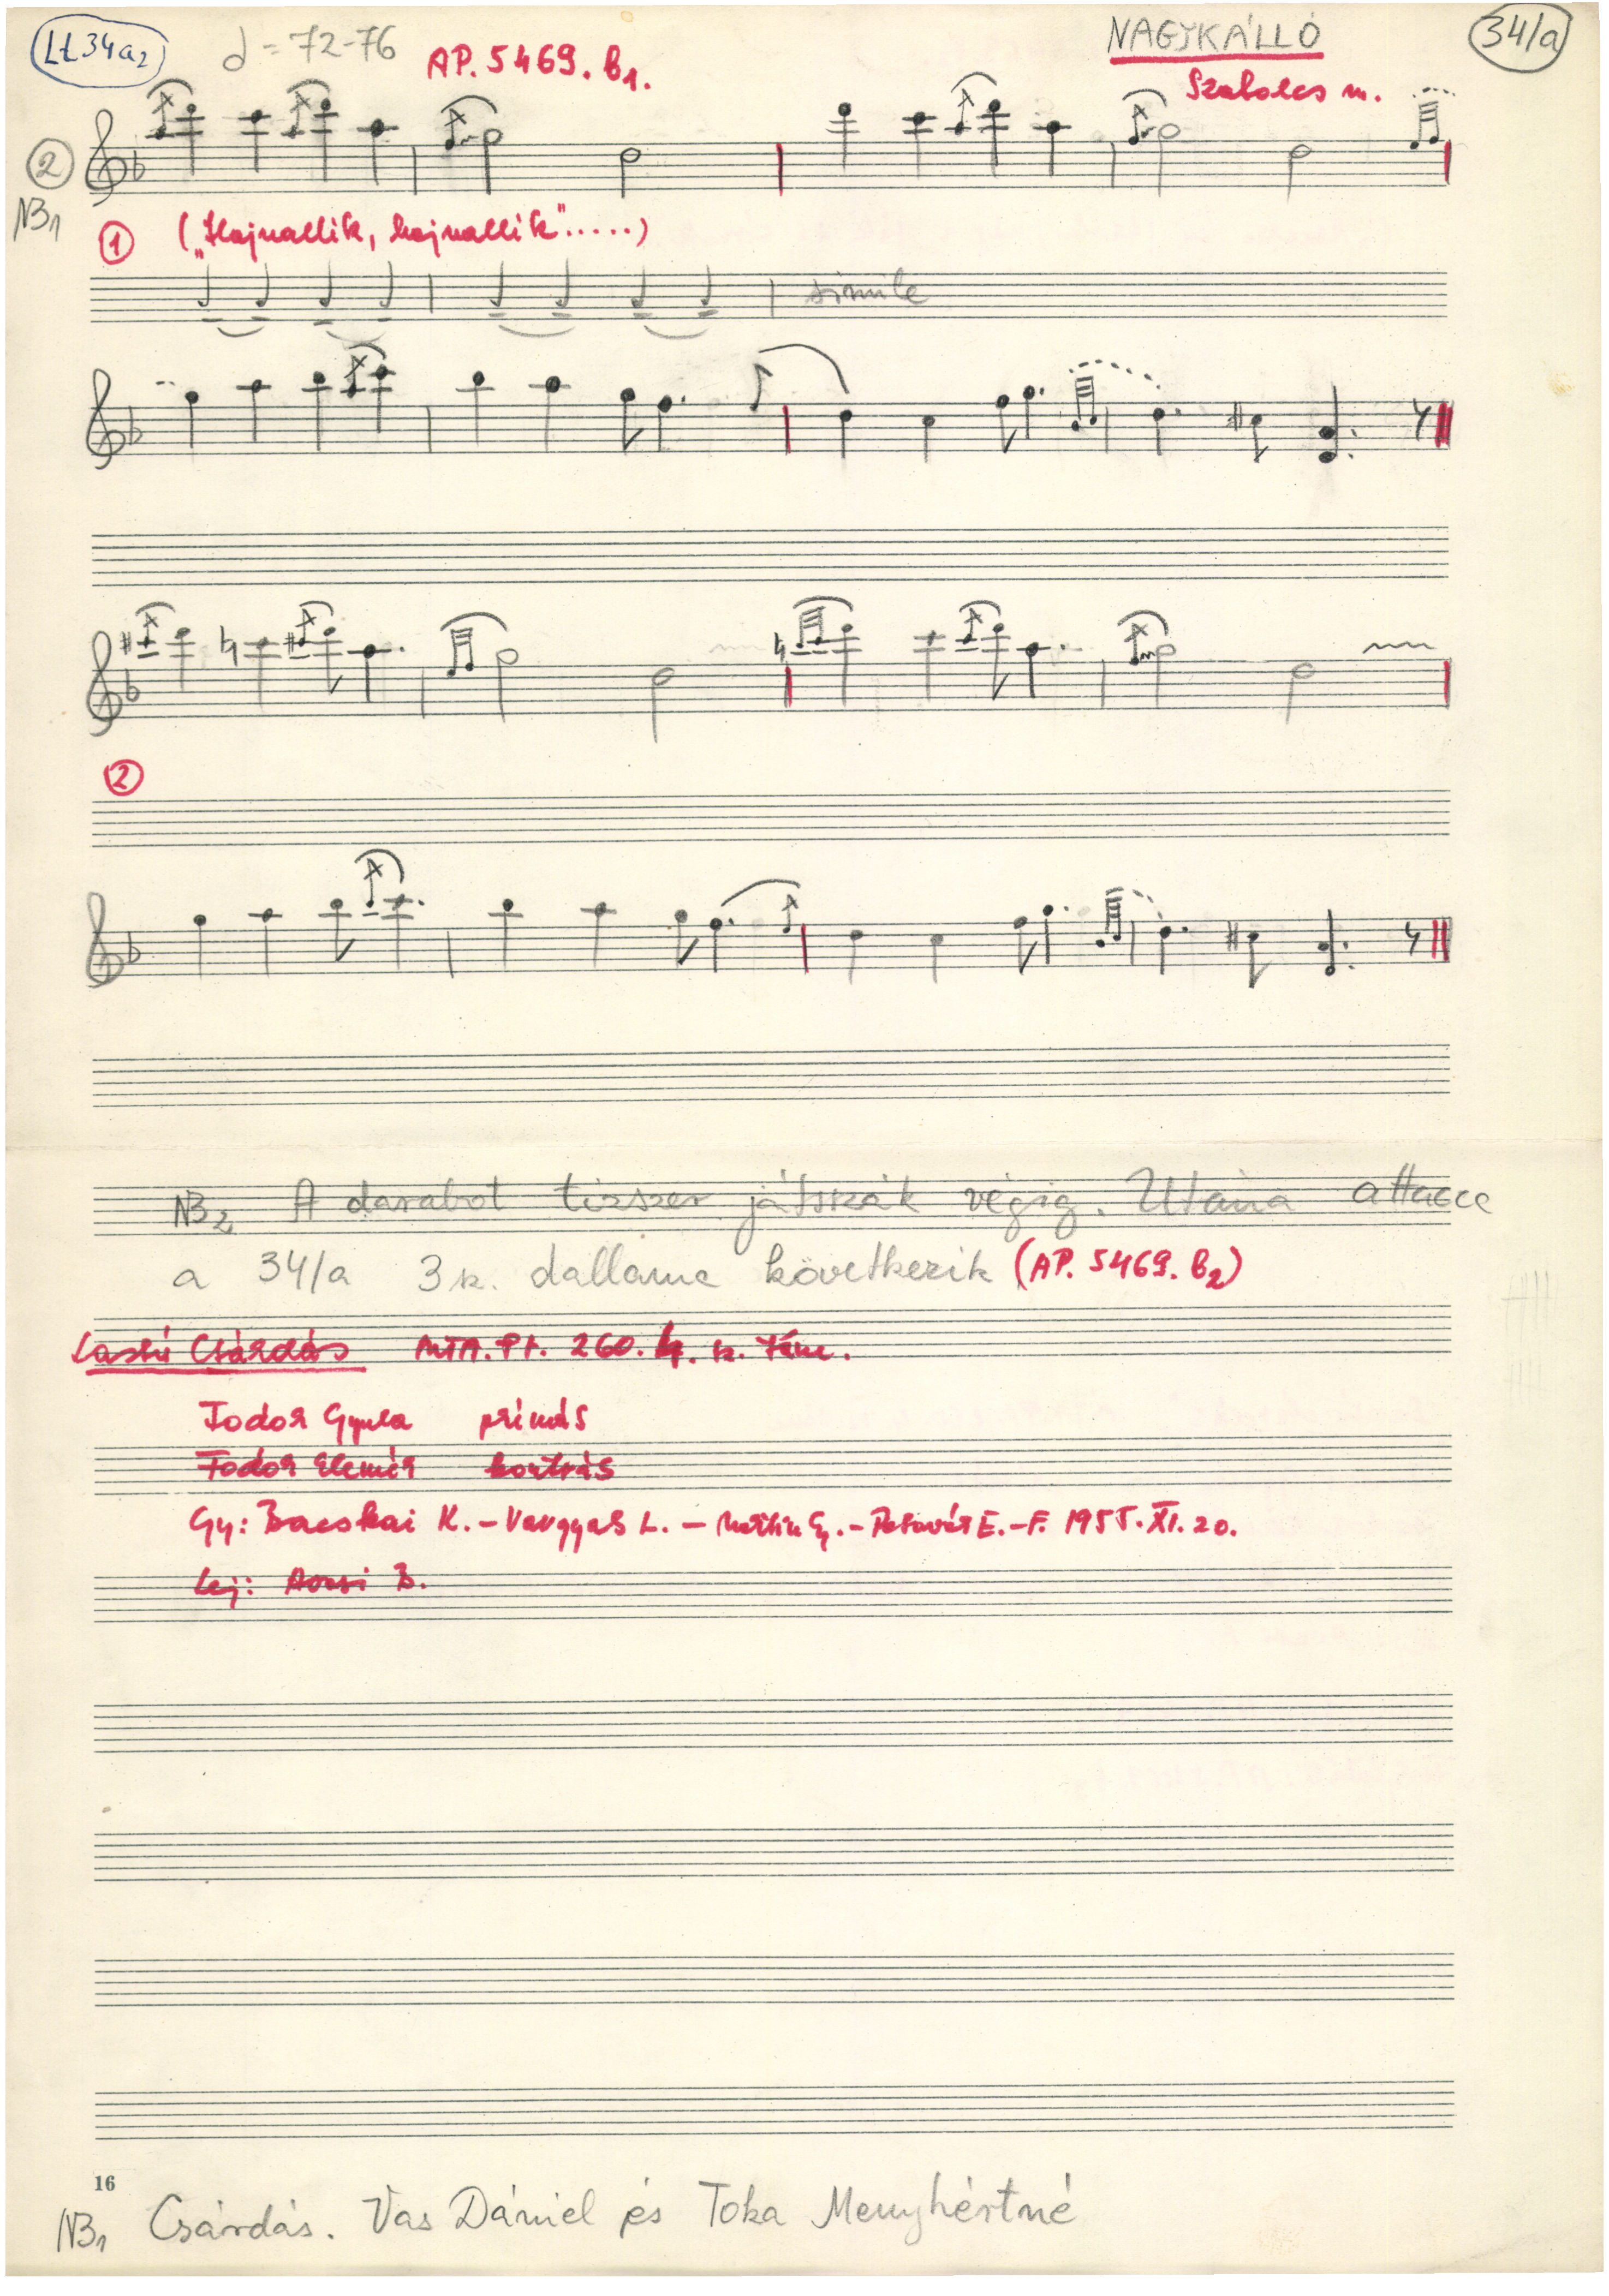 Lt 34a2
= 72-76
AP. 5469. b1.
NAGYKÁLLÓ
34/a
Szabolcs m.
2
NB1
1
("Hajnallik, hajnallik".....)
simile
2
NB2 A darabot tízszer játszák végig. Utána attacca
a 34/a 3k. dallama következik (AP. 5469. b2)
Lassú Csárdás MTA. Ft. 260. k. tánc.
Fodor Gyula prímás
Fodor Elemér kontrás
Gy: Bacskai K. - Vargyas L. - Martin Gy. - Pesovár E. - F. 1955. XI. 20.
Lej: B.
16
NB1 Csárdás. Vas Dániel és Toka Menyhértné